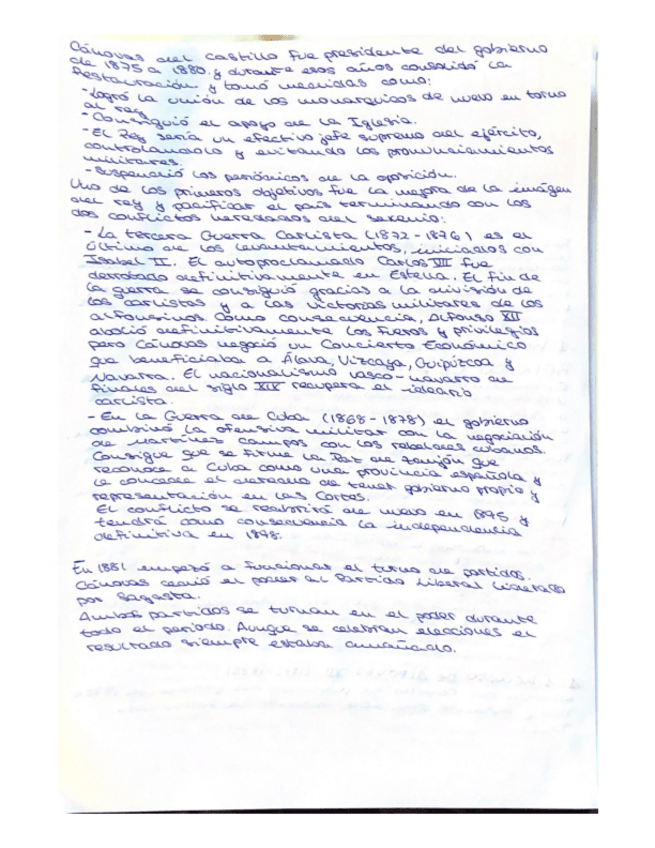 Cánovas del Castillo fue presidente del gobierno
de 1875 a 1880 y durante esos años consolidó la
Restauración y tomó medidas como:
- Logró la unión de los monarquicos de nuevo en torno
al rey.
- Consiguió el apoyo de la Iglesia.
- El Rey sería un efectivo jefe supremo del ejército,
controlandolo y evitando los pronunciamientos
militares.
- Suspendió los periódicos de la oposición.
Uno de los primeros objetivos fue la mejora de la imágen
del rey y pacificar el país terminando con los
dos conflictos heredados del sexenio:
- La tercera Guerra Carlista (1872-1876) es el
último de los levantamientos, iniciados con
Isabel II. El autoproclamado Carlos VII fue
derrotado definitivamente en Estella. El fin de
la guerra se consiguió gracias a la división de
los carlistas y a las victorias militares de los
alfonsinos como consecuencia, Alfonso XII
abolió definitivamente los fueros y privilegios
pero Cánovas negoció un Concierto Económico
que beneficiaba a Álava, Vizcaya, Guipúzcoa y
Navarra. El nacionalismo vasco-navarro de
finales del siglo XIX recupera el ideario
carlista.
- En la Guerra de Cuba (1868-1878) el gobierno
combinó la ofensiva militar con la negociación
de Martínez Campos con los rebeldes cubanos.
Consigue que se firme la Paz de Zanjón que
reconoce a Cuba como una provincia española y
le concede el derecho de tener gobierno propio y
representación en las Cortes.
El conflicto se reabrirá de nuevo en 1895 y
tendrá como consecuencia la independencia
definitiva en 1898.
En 1881 empezó a funcionar el turno de partidos.
Cánovas cedió el poder al Partido Liberal liderado
por Sagasta.
Ambos partidos se turnan en el poder durante
todo el periodo. Aunque se celebran elecciones el
resultado siempre estaba amañado.